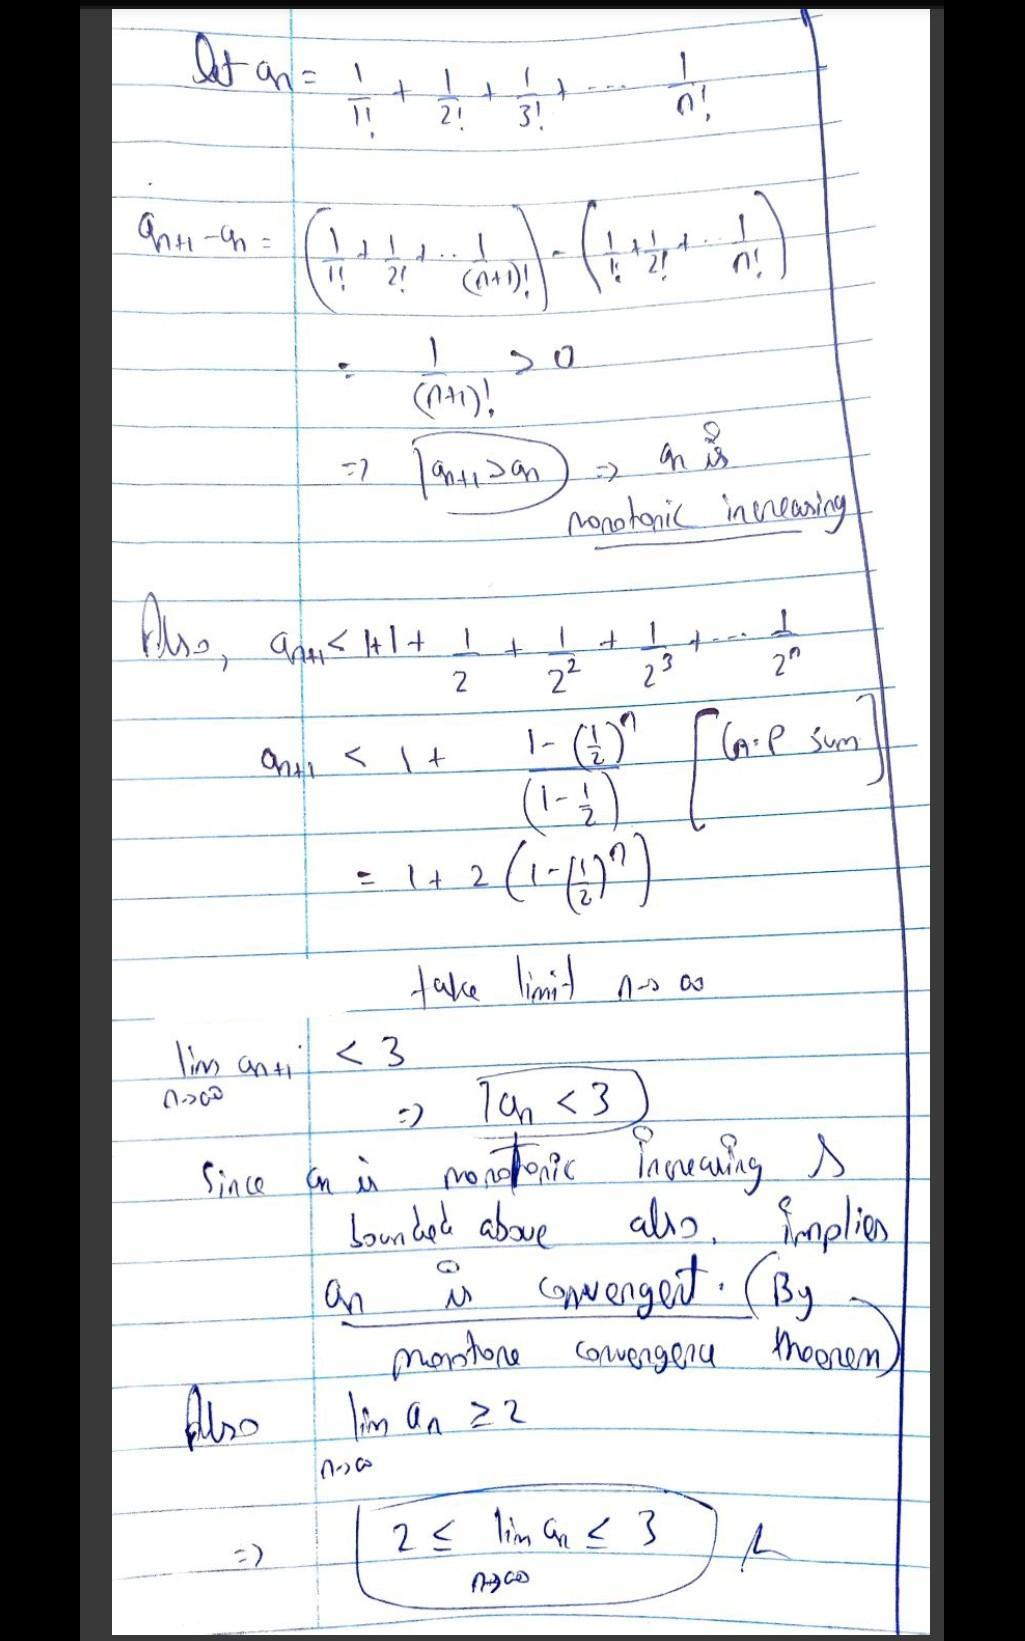 let an = 1/1! + 1/2! + 1/3! + ... 1/n!
an+1 - an = (1/1! + 1/2! + .. 1/(n+1)!) - (1/1! + 1/2! + .. 1/n!)
= 1/(n+1)! > 0
=> an+1 > an => an is
monotonic increasing
Also, an+1 < 1+1+ 1/2 + 1/2² + 1/2³ + ... 1/2ⁿ
an+1 < 1 + (1-(1/2)ⁿ)/(1-1/2) [G.P sum]
= 1+ 2 (1-(1/2)ⁿ)
take limit n→∞
lim an+1 < 3
n→∞
=> an < 3
Since an is monotonic increasing &
bounded above also, implies
an is convergent. (By
monotone convergence theorem)
Also lim an ≥ 2
n→∞
=> 2 ≤ lim an ≤ 3
n→∞